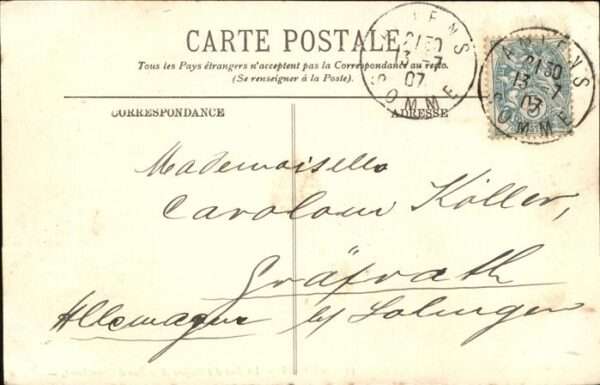 CARTE POSTALE
Tous les Pays étrangers n'acceptent pas la Correspondance au recto.
(Se renseigner à la Poste).
CORRESPONDANCE
ADRESSE
AMIENS
21 30
13 - 7
07
SOMME
AMIENS
21 30
13 - 7
07
SOMME
Mademoiselle
Köller,
Gräfrath
Allemagne b/ Solingen